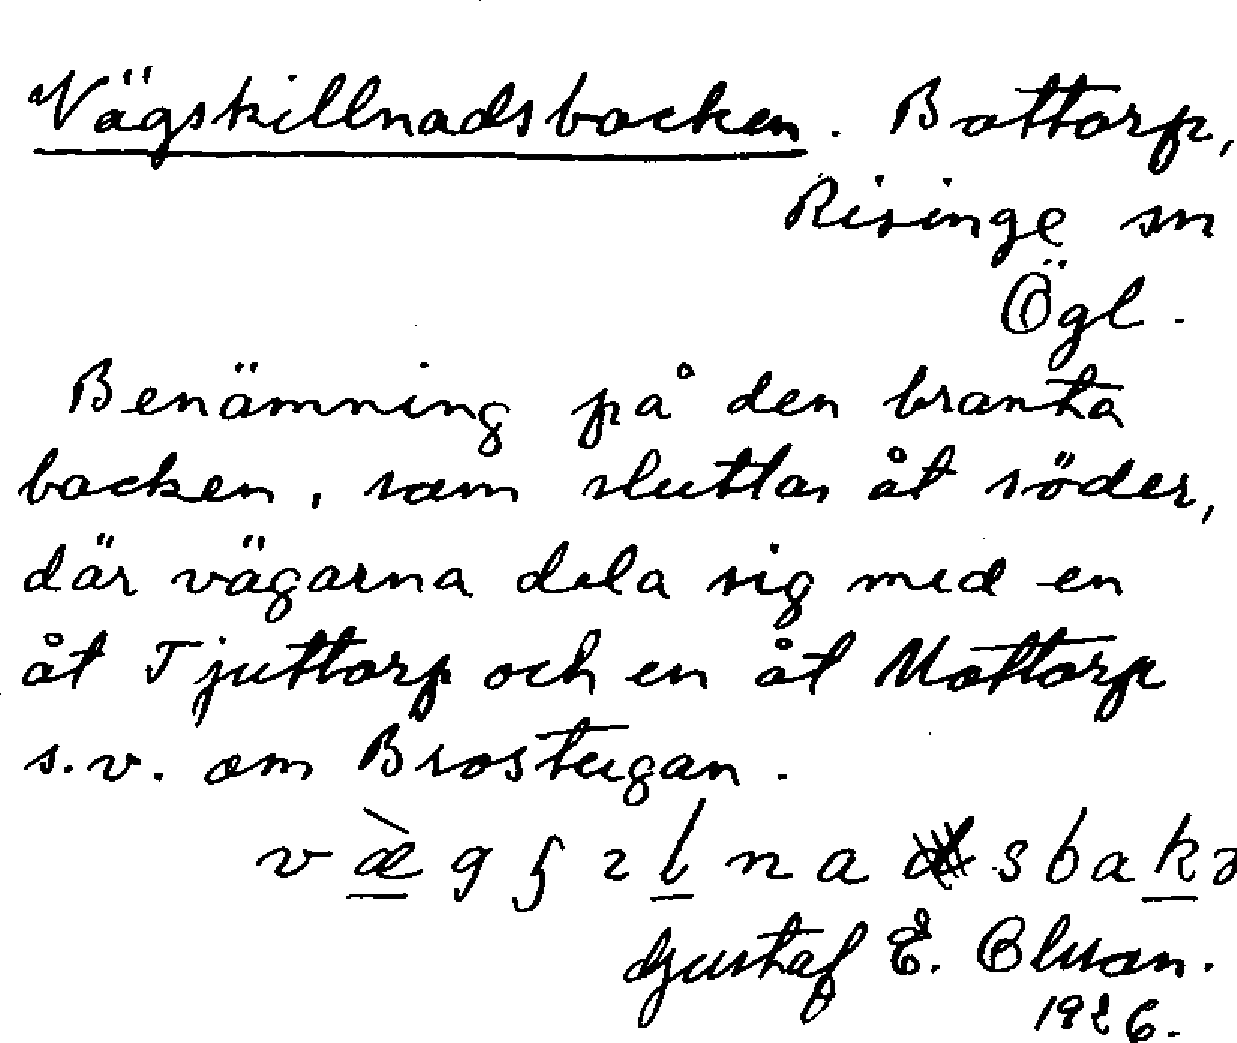 Vägskillnadsbacken. Bottorp,
Risinge sn
Ögl.
Benämning på den branta
backen, som sluttar åt söder,
där vägarna dela sig med en
åt Tjuttorp och en åt Mottorp
s.v. om Brosteigan.
Gustaf E. Olson.
1926.